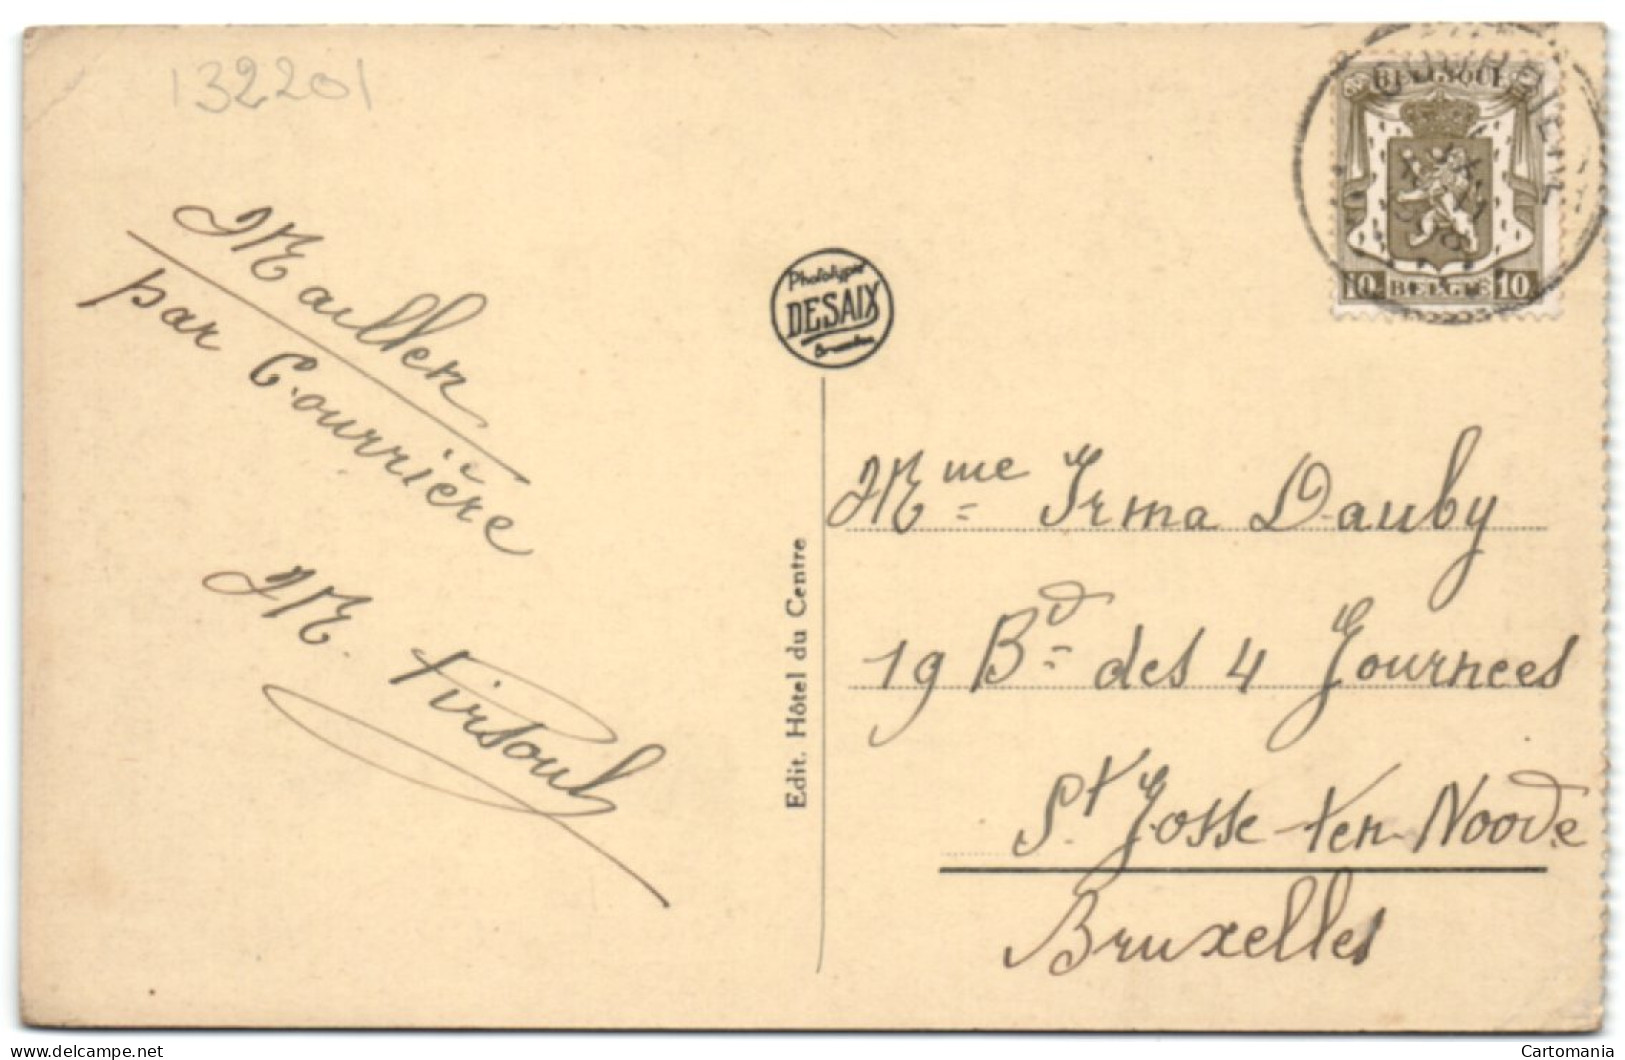 132201
Maillen
par Courrière
M. Firsoul
Phototypie
DESAIX
Edit. Hôtel du Centre
BELGIQUE
10 BELGIË 10
Mme Irma Dauby
19 Bd des 4 Journees
St Josse-ten-Noode
Bruxelles
delcampe.net
Cartomania